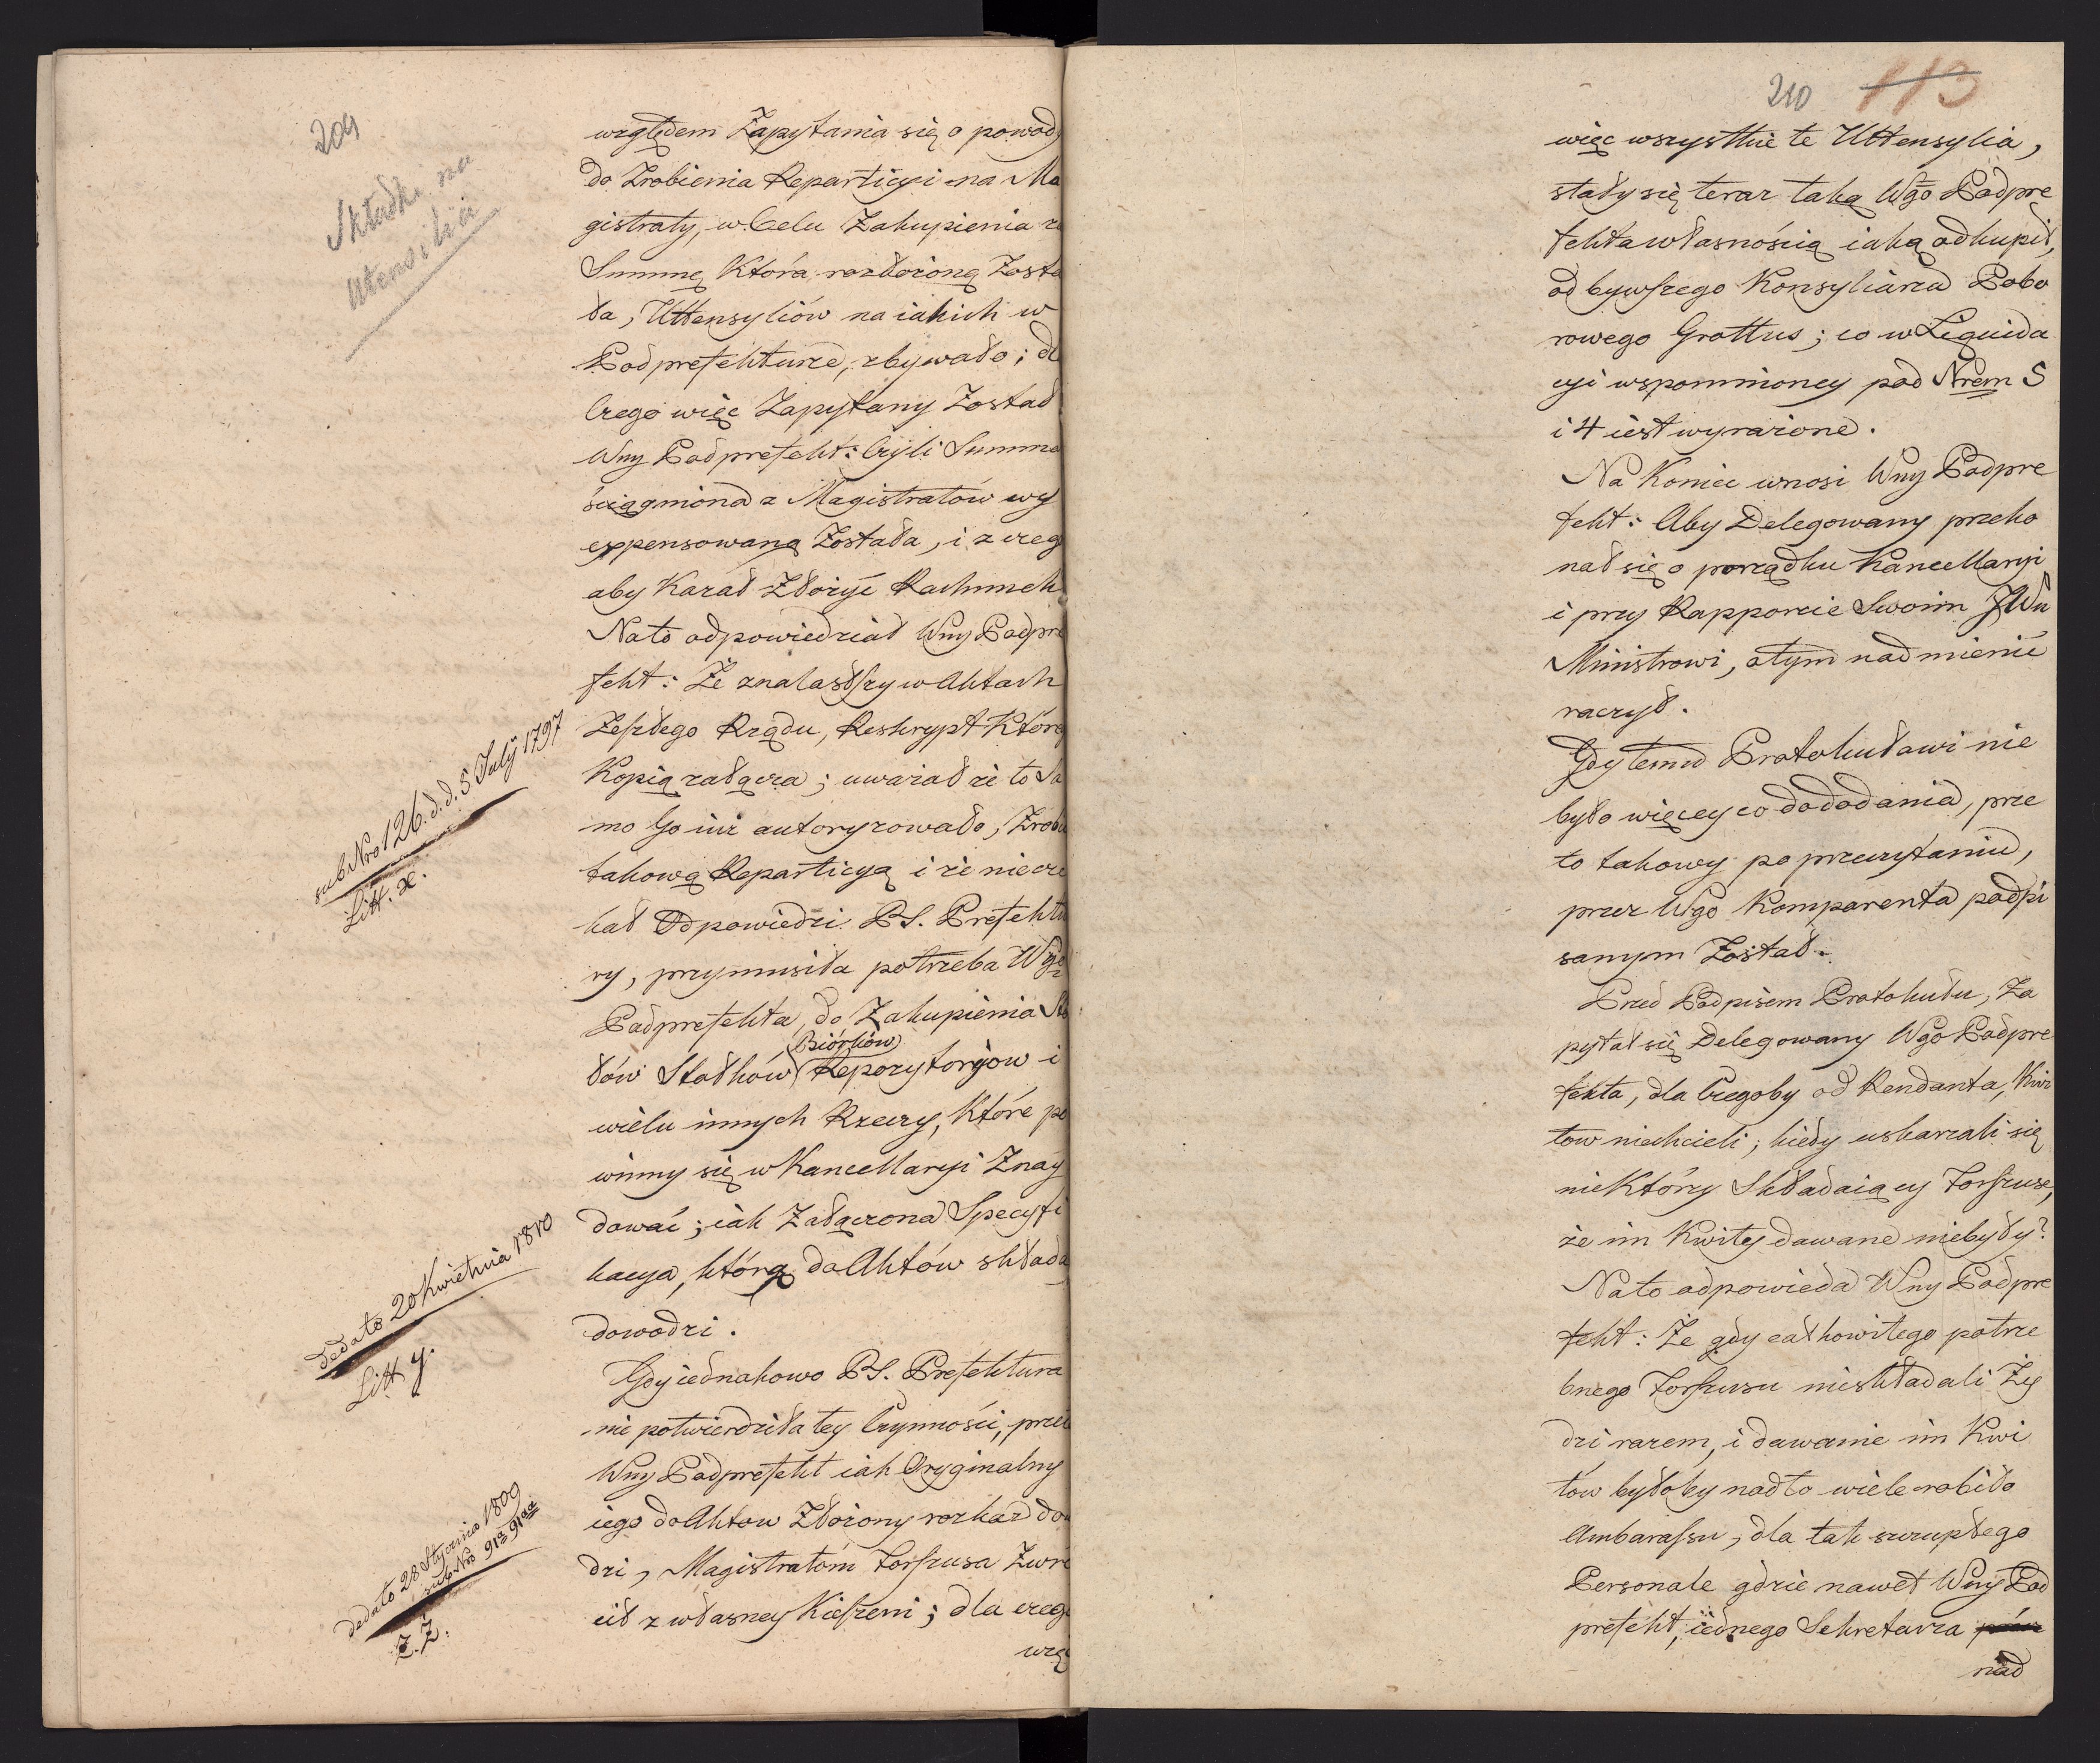 209
Składka na
Utensilia
względem Zapytania się o powody
do Zrobienia Reparticyi na Ma
gistraty, w Celu Zakupienia za
Summę Która rozłożoną Zosta
ła, Uttensyliów na iakich w
Podprefekturze, zbywało; dla
Czego więc Zapytany Został
Wny Podprefekt: Czyli Summa
ściągniona z Magistratów wy
expensowaną Została, i z czego
aby Kazał Złożyć Rachunek
Na to odpowiedział Wny Podpre
fekt: Że znalasłszy w Aktach
Zeszłego Rządu, Reskrypt Którego
Kopią załącza; uważał że to Sa
mo Go iuż autoryzowało, Zrobić
takową Reparticyą i że nie cze
kał Odpowiedzi PS. Prefektu
ry, przymusiła potrzeba Wgo
Podprefekta, do Zakupienia Sto
łów Stołków Biórków Repozytoryów i
wielu innych Rzeczy, Które po
winny się w Kancellaryi Znay
dować; iak Załączona Specyfi
kacya, którą do Aktów składa
dowodzi.
Gdy iednakowo PS. Prefektura
nie potwierdziła tey Czynności, przeto
Wny Podprefekt iak Oryginalny
iego do Aktow Złożony rozkaz dowo
dzi, Magistratom Forszusa Zwró
cił z własney Kieszeni; dla czego
wię
sub Nro 126. d. d. 5 July 1797
Litt. x.
de dato 20 Kwietnia 1810
Litt y.
de dato 28 Stycznia 1809
sub Nro 91a 91aa
Z. Z.
210 113
więc wszystkie te Uttensylia,
stały się teraz taką Wgo Podpre
fekta własnością iaką odkupił,
od bywszego Konsyliarza Pobo
rowego Grottus; co w Liquida
cyi wspomnioney pod Nrem 5
i 4 iest wyrażone.
Na Koniec wnosi Wny Podpre
fekt: Aby Delegowany przeko
nał się o porządku Kancellaryi
i przy Rapporcie Swoim JWu
Ministrowi, o tym nadmienić
raczył.
Gdy temu Protokułowi nie
było więcey co do dodania, prze
to takowy po przeczytaniu,
przez Wgo Komparenta podpi
sanym Został.
Przed Podpisem Protokułu, Za
pytał się Delegowany Wgo Podpre
fekta, dla Czegoby od Rendanta, Kwi
tow niechcieli, kiedy uskarzali się
nieKtóry Składaiący Forszuse,
że im Kwity dawane niebyły?
Na to odpowieda Wny Podpre
fekt: Że gdy całkowitego potrze
bnego Forszusu nieskładali Ży
dzi razem, i dawanie im Kwi
tów byłoby nadto wiele robiło
Ambarassu, dla tak szczupłego
Personale gdzie nawet Wny Pod
prefekt, iednego Sekretarza
nad